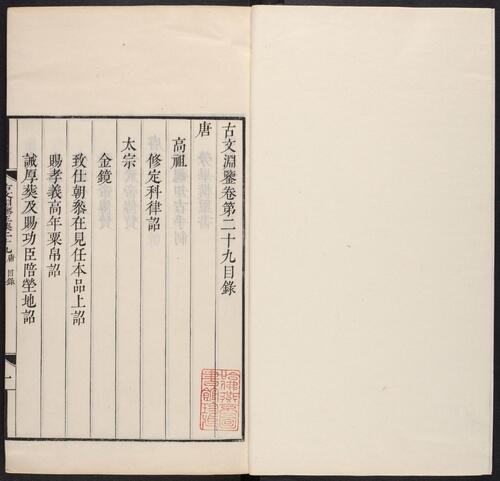 古文淵鑒卷第二十九目錄
唐
高祖
修定科律詔
太宗
金鏡
致仕朝參在見任本品上詔
賜孝義高年粟帛詔
誡厚葬及賜功臣陪塋地詔
古文淵鑒卷二十九 唐 目錄
一